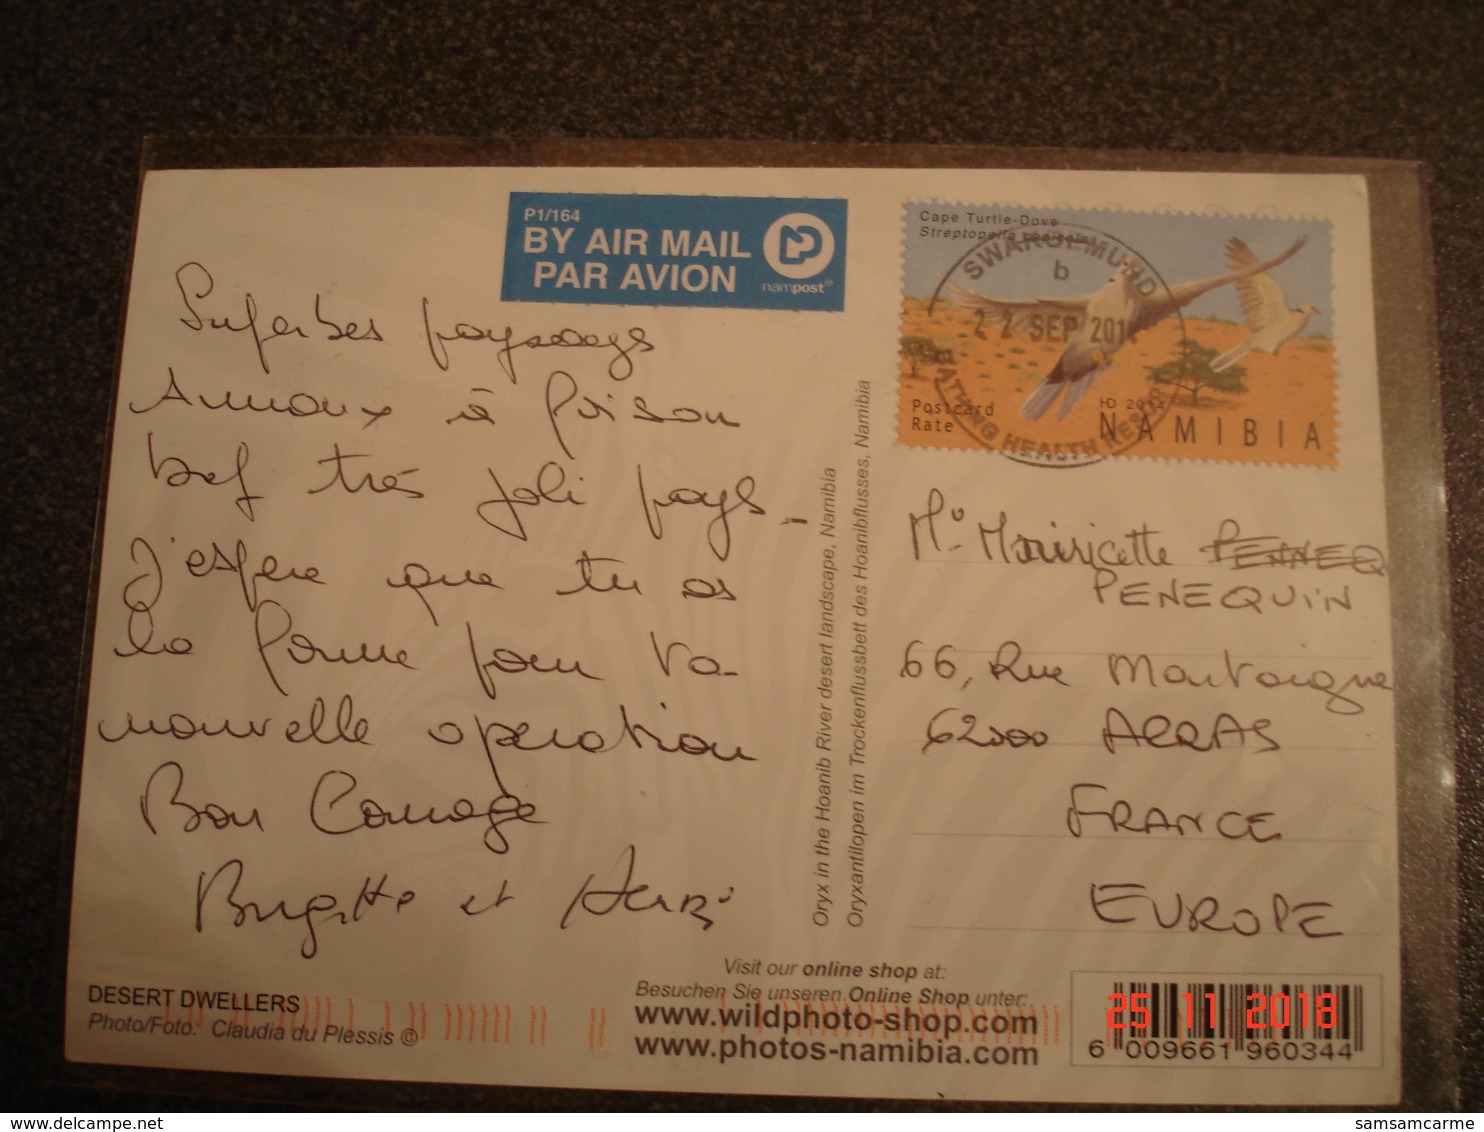 P1/164
BY AIR MAIL
PAR AVION
nampost
Cape Turtle-Dove
Streptopelia
SWAKOPMUND
b
22 SEP 2014
BATHING HEALTH
Postcard
Rate
HD 2014
NAMIBIA
Superbes paysages
Animaux à foison
bref très joli pays
J'espère que tu as
la forme pour ta
nouvelle opération
Bon Courage
Brigitte et Hervé
Oryx in the Hoanib River desert landscape, Namibia
Oryxantilopen im Trockenflussbett des Hoanibflusses, Namibia
PENEQUIN
66, Rue Montaigne
62000 ARRAS
FRANCE
EUROPE
DESERT DWELLERS
Photo/Foto: Claudia du Plessis ©
Visit our online shop at:
Besuchen Sie unseren Online Shop unter:
www.wildphoto-shop.com
www.photos-namibia.com
25 11 2018
6 009661 960344
delcampe.net
samsamcarme